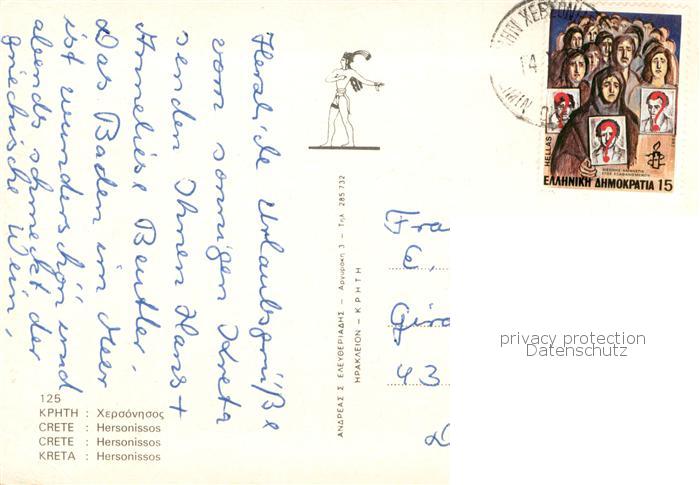 Herzliche Urlaubsgrüße
vom sonnigen Kreta
senden Ihnen Hans +
Anneliese Beutler.
Das Baden im Meer
ist wunderschön und
abends schmeckt der
griechische Wein.
125
ΚΡΗΤΗ : Χερσόνησος
CRETE : Hersonissos
CRETE : Hersonissos
KRETA : Hersonissos
ΑΝΔΡΕΑΣ Σ ΕΛΕΥΘΕΡΙΑΔΗΣ — Αργυράκη 3 — Τηλ 285 732
ΗΡΑΚΛΕΙΟΝ — ΚΡΗΤΗ
Fra
E.
43
D
HELLAS
ΕΛΛΗΝΙΚΗ ΔΗΜΟΚΡΑΤΙΑ 15
privacy protection
Datenschutz